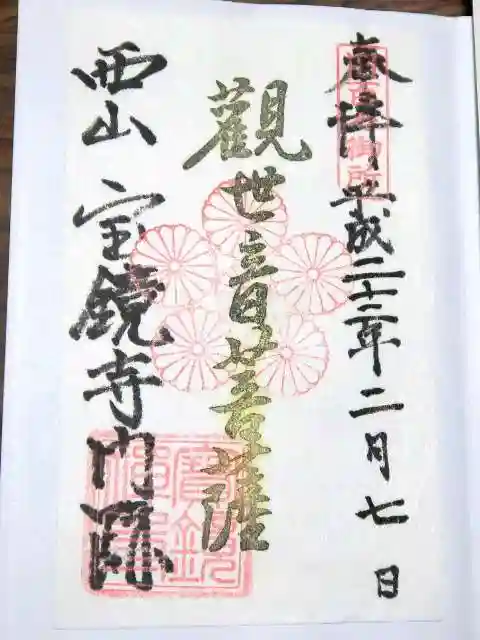 奉拝 平成二十二年二月七日
百々御所
觀世音菩薩
西山 宝鏡寺門跡
寶鏡